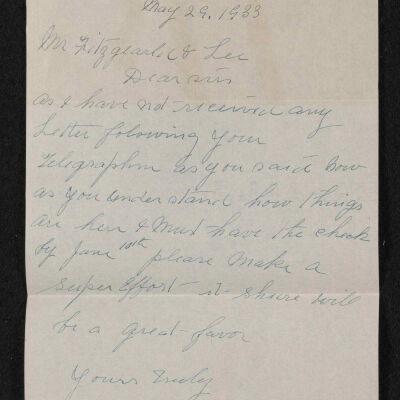 May 29, 1933
Mr Fitzgearld & Lee
Dear sirs
as I have not received any
Letter folowing your
Telegraphm as you said Now
as you understand how things
are here I Must have the check
by June 10th please Make a
super Effort it shure will
be a great favor
Yours truly